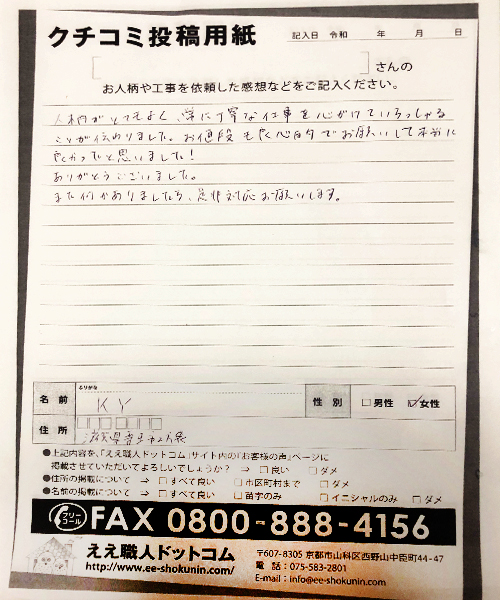 クチコミ投稿用紙
記入日 令和 年 月 日
[ ]さんの
お人柄や工事を依頼した感想などをご記入ください。
人柄がとてもよく、常に丁寧な仕事を心がけていらっしゃる
ことが伝わりました。お値段も良心的でお願いして本当に
良かったと思いました!
ありがとうございました。
また何かありましたら、是非対応お願いします。
ふりがな
名前 KY 性別 □男性 ☑女性
住所 滋賀県
●上記内容を、「ええ職人ドットコム」サイト内の『お客様の声』ページに
掲載させていただいてよろしいでしょうか? ⇒ □良い □ダメ
●住所の掲載について ⇒ □すべて良い □市区町村まで □ダメ
●名前の掲載について ⇒ □すべて良い □苗字のみ □イニシャルのみ □ダメ
フリーコール FAX 0800-888-4156
ええ職人ドットコム
http://www.ee-shokunin.com/
〒607-8305 京都市山科区西野山中臣町44-47
電話:075-583-2801
E-mail:info@ee-shokunin.com